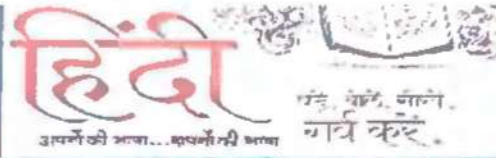 हिंदी
अपनों की भाषा...सपनों की भाषा
पढ़ें, बोलें, मानें,
गर्व करें.